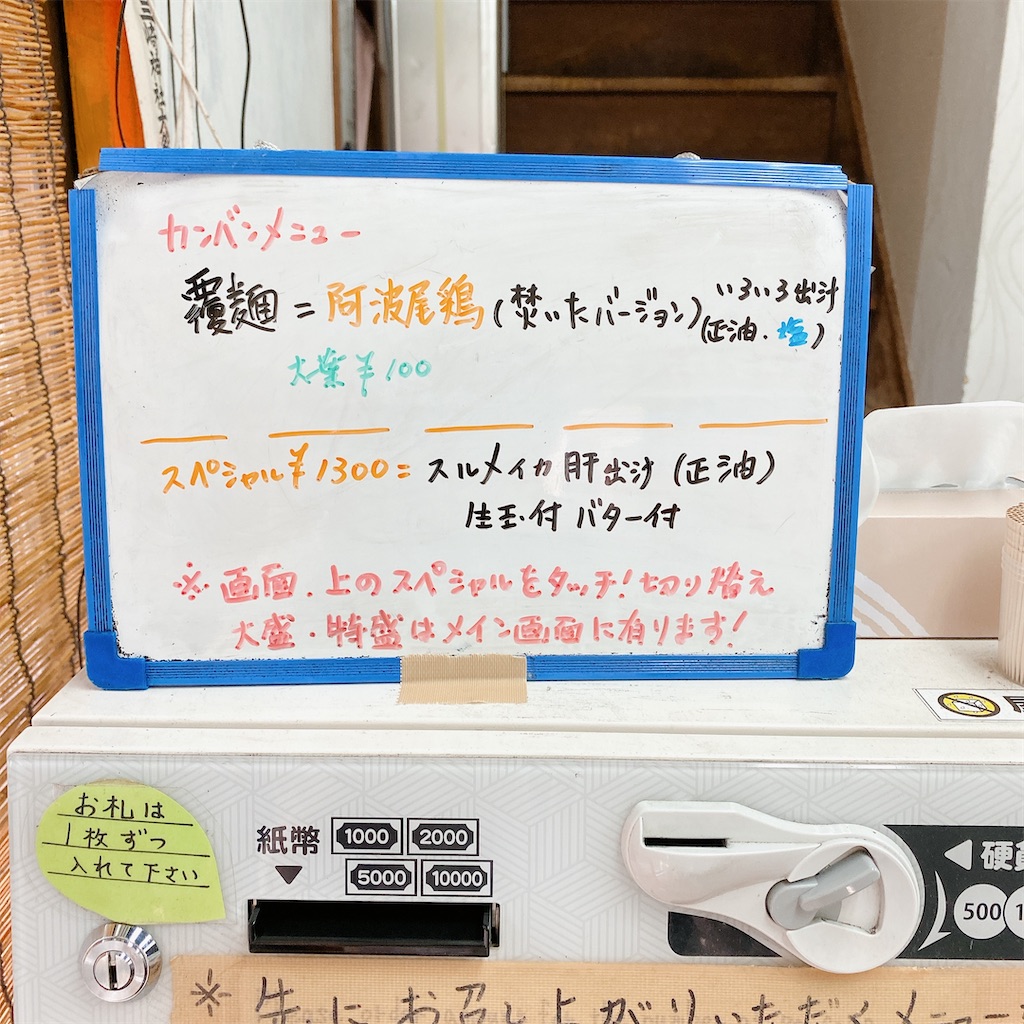 カンバンメニュー
覆麺=阿波尾鶏(焚いたバージョン)いろいろ出汁
(正油.塩)
大葉¥100
スペシャル¥1300=スルメイカ肝出汁(正油)
生玉付バター付
※画面.上のスペシャルをタッチ!切り替え
大盛・特盛はメイン画面に有ります!
お札は
1枚ずつ
入れて下さい
紙幣 1000 2000
5000 10000
硬
500
※先にお召し上がりいただくメニュー